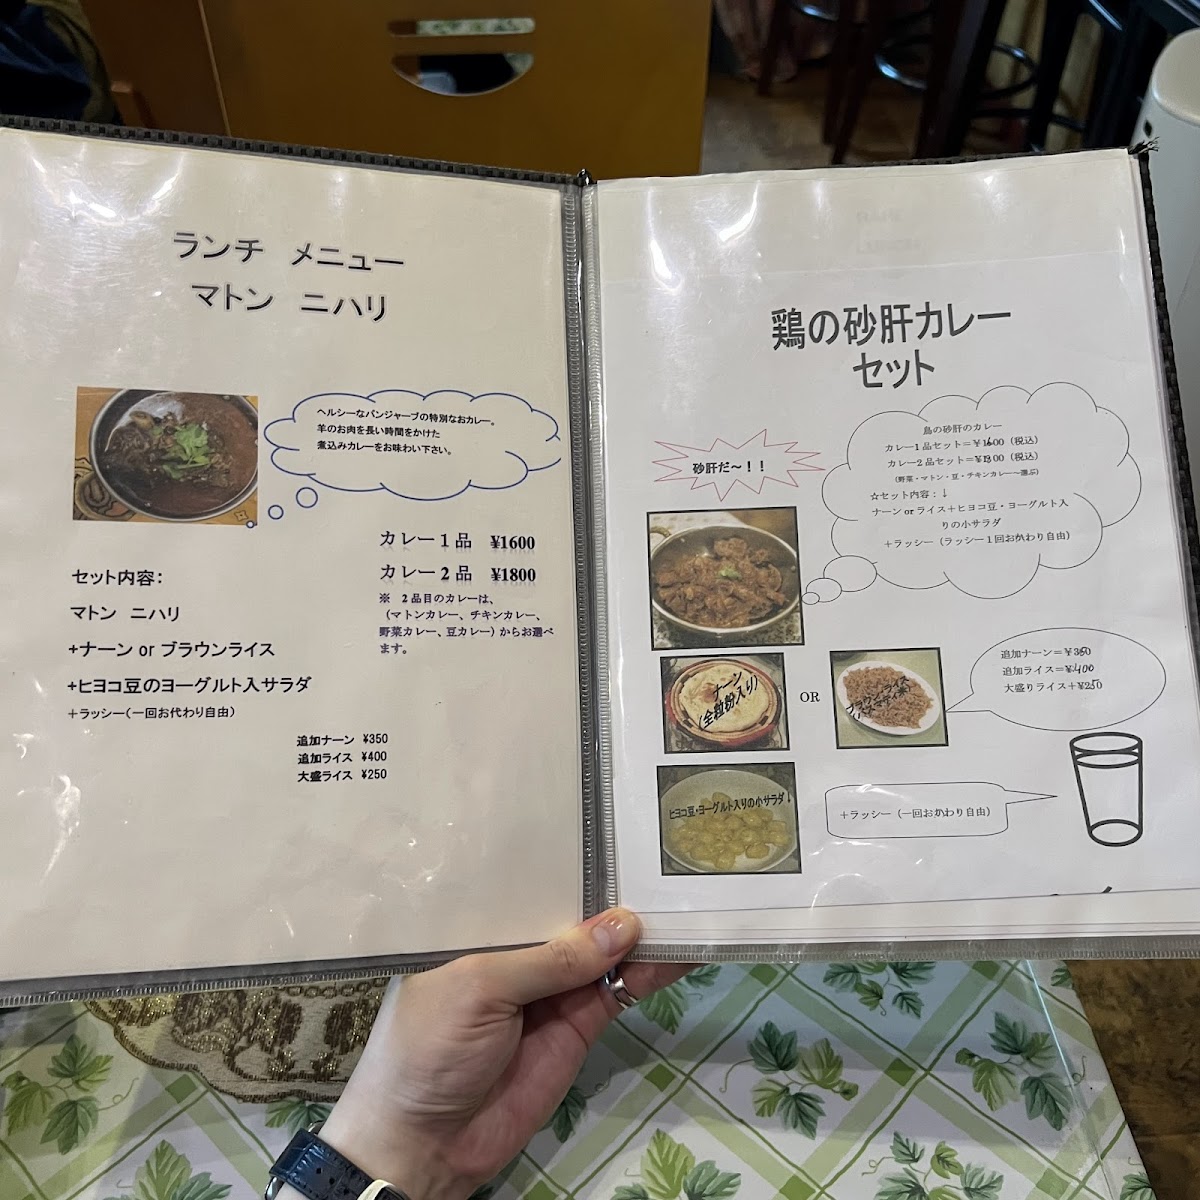 ランチ メニュー
マトン ニハリ
ヘルシーなパンジャーブの特別なおカレー。
羊のお肉を長い時間をかけた
煮込みカレーをお味わい下さい。
カレー１品 ¥1600
カレー２品 ¥1800
※ ２品目のカレーは、
（マトンカレー、チキンカレー、
野菜カレー、豆カレー）からお選べ
ます。
セット内容：
マトン ニハリ
+ナーン or ブラウンライス
+ヒヨコ豆のヨーグルト入サラダ
+ラッシー（一回お代わり自由）
追加ナーン ¥350
追加ライス ¥400
大盛ライス ¥250
鶏の砂肝カレー
セット
砂肝だ～！！
鳥の砂肝のカレー
カレー1品セット＝￥1600（税込）
カレー2品セット＝￥1800（税込）
（野菜・マトン・豆・チキンカレー～選ぶ）
☆セット内容：↓
ナーン or ライス＋ヒヨコ豆・ヨーグルト入
りの小サラダ
＋ラッシー（ラッシー１回おかわり自由）
ナーン
（全粒粉入り）
OR
ブラウンライス
追加ナーン＝￥350
追加ライス＝￥400
大盛りライス＋￥250
ヒヨコ豆・ヨーグルト入りの小サラダ↓
＋ラッシー（一回おかわり自由）